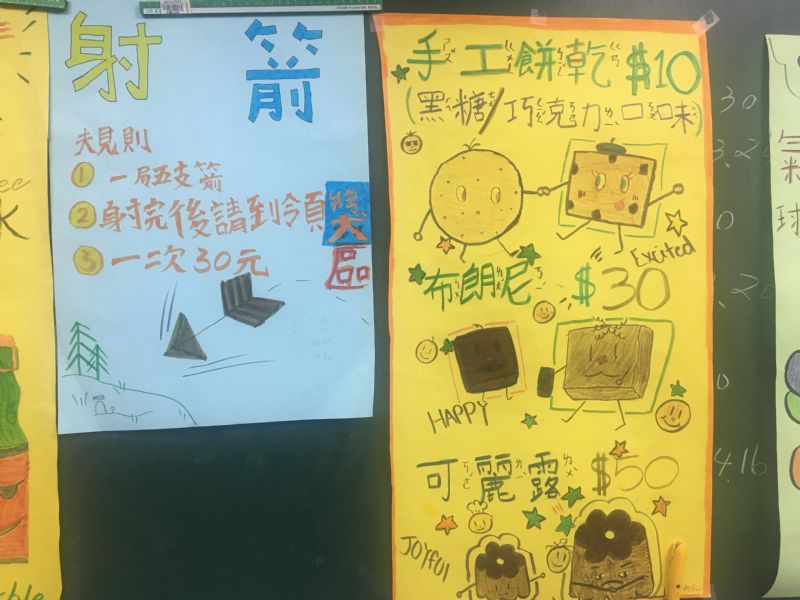 射箭
規則
① 一局五支箭
② 射完後請到領獎區
③ 一次30元
手工餅乾 $10
(黑糖/巧克力口味)
Excited
布朗尼 $30
HAPPY
可麗露 $50
JOYFUL
球
30
0
0
4.16